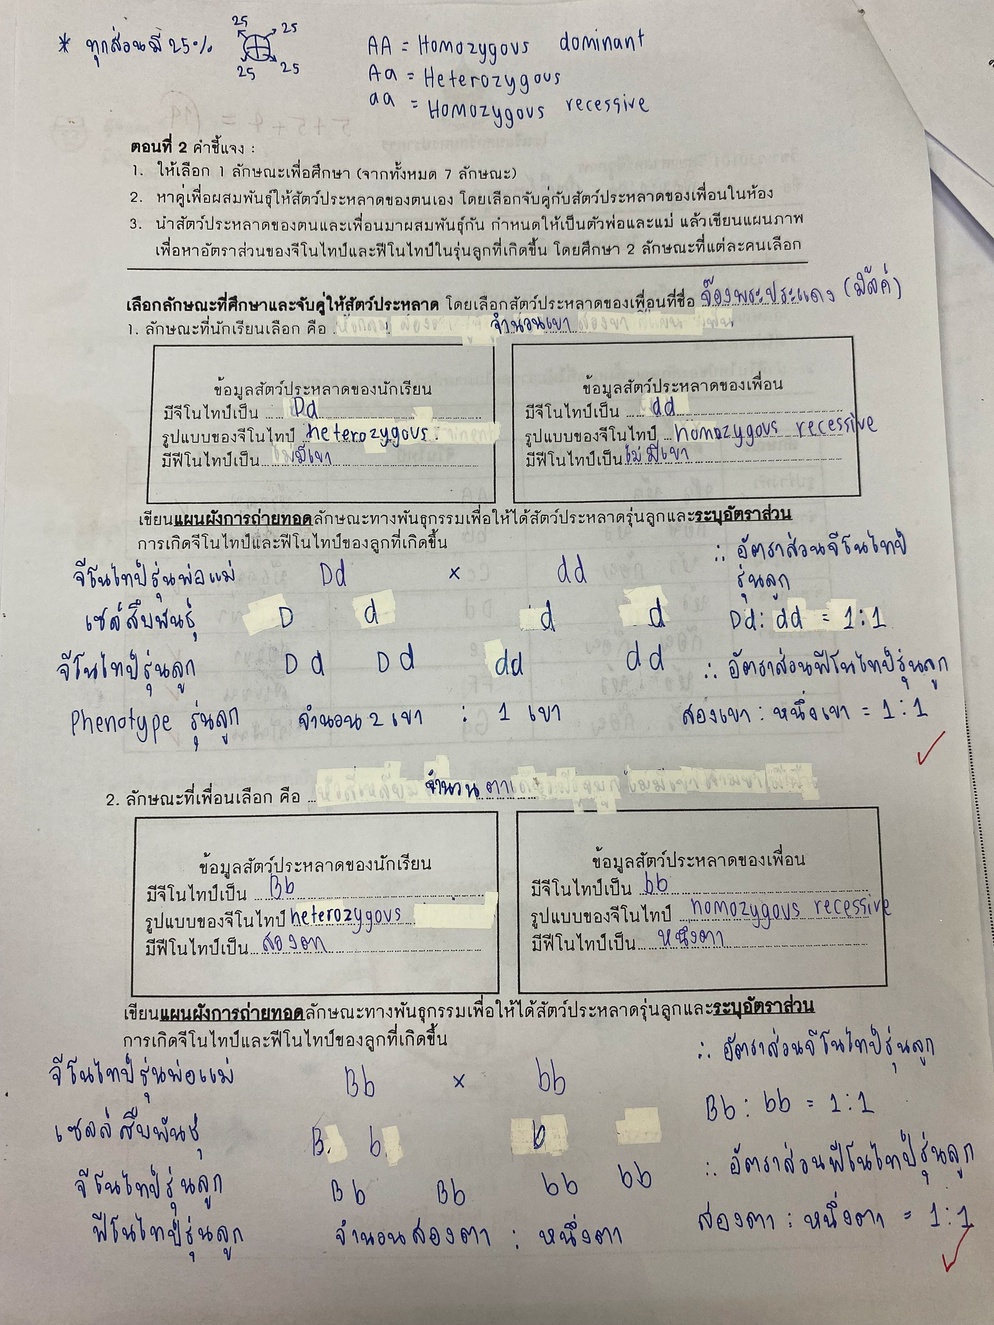 * ทุกส่วนมี 25%
25 25
25 25
AA = Homozygous dominant
Aa = Heterozygous
aa = Homozygous recessive
ตอนที่ 2 คำชี้แจง :
1. ให้เลือก 1 ลักษณะเพื่อศึกษา (จากทั้งหมด 7 ลักษณะ)
2. หาคู่เพื่อผสมพันธุ์ให้สัตว์ประหลาดของตนเอง โดยเลือกจับคู่กับสัตว์ประหลาดของเพื่อนในห้อง
3. นำสัตว์ประหลาดของตนและเพื่อนมาผสมพันธุ์กัน กำหนดให้เป็นตัวพ่อและแม่ แล้วเขียนแผนภาพ
เพื่อหาอัตราส่วนของจีโนไทป์และฟีโนไทป์ในรุ่นลูกที่เกิดขึ้น โดยศึกษา 2 ลักษณะที่แต่ละคนเลือก
เลือกลักษณะที่ศึกษาและจับคู่ให้สัตว์ประหลาด โดยเลือกสัตว์ประหลาดของเพื่อนที่ชื่อ
1. ลักษณะที่นักเรียนเลือก คือ จำนวนเขา
ข้อมูลสัตว์ประหลาดของนักเรียน
มีจีโนไทป์เป็น Dd
รูปแบบของจีโนไทป์ heterozygous.
มีฟีโนไทป์เป็น มีเขา
ข้อมูลสัตว์ประหลาดของเพื่อน
มีจีโนไทป์เป็น dd
รูปแบบของจีโนไทป์ homozygous recessive
มีฟีโนไทป์เป็น ไม่มีเขา
เขียนแผนผังการถ่ายทอดลักษณะทางพันธุกรรมเพื่อให้ได้สัตว์ประหลาดรุ่นลูกและระบุอัตราส่วน
การเกิดจีโนไทป์และฟีโนไทป์ของลูกที่เกิดขึ้น
จีโนไทป์รุ่นพ่อแม่ Dd × dd
เซลล์สืบพันธุ์ D d d d
จีโนไทป์รุ่นลูก Dd Dd dd dd
Phenotype รุ่นลูก จำนวน 2 เขา : 1 เขา
∴ อัตราส่วนจีโนไทป์
รุ่นลูก
Dd : dd = 1:1
∴ อัตราส่วนฟีโนไทป์รุ่นลูก
สองเขา : หนึ่งเขา = 1:1
2. ลักษณะที่เพื่อนเลือก คือ จำนวนตา
ข้อมูลสัตว์ประหลาดของนักเรียน
มีจีโนไทป์เป็น Bb
รูปแบบของจีโนไทป์ heterozygous
มีฟีโนไทป์เป็น สองตา
ข้อมูลสัตว์ประหลาดของเพื่อน
มีจีโนไทป์เป็น bb
รูปแบบของจีโนไทป์ homozygous recessive
มีฟีโนไทป์เป็น หนึ่งตา
เขียนแผนผังการถ่ายทอดลักษณะทางพันธุกรรมเพื่อให้ได้สัตว์ประหลาดรุ่นลูกและระบุอัตราส่วน
การเกิดจีโนไทป์และฟีโนไทป์ของลูกที่เกิดขึ้น
จีโนไทป์รุ่นพ่อแม่ Bb × bb
เซลล์สืบพันธุ์ B b b
จีโนไทป์รุ่นลูก Bb Bb bb bb
ฟีโนไทป์รุ่นลูก จำนวนสองตา : หนึ่งตา
∴ อัตราส่วนจีโนไทป์รุ่นลูก
Bb : bb = 1:1
∴ อัตราส่วนฟีโนไทป์รุ่นลูก
สองตา : หนึ่งตา = 1:1